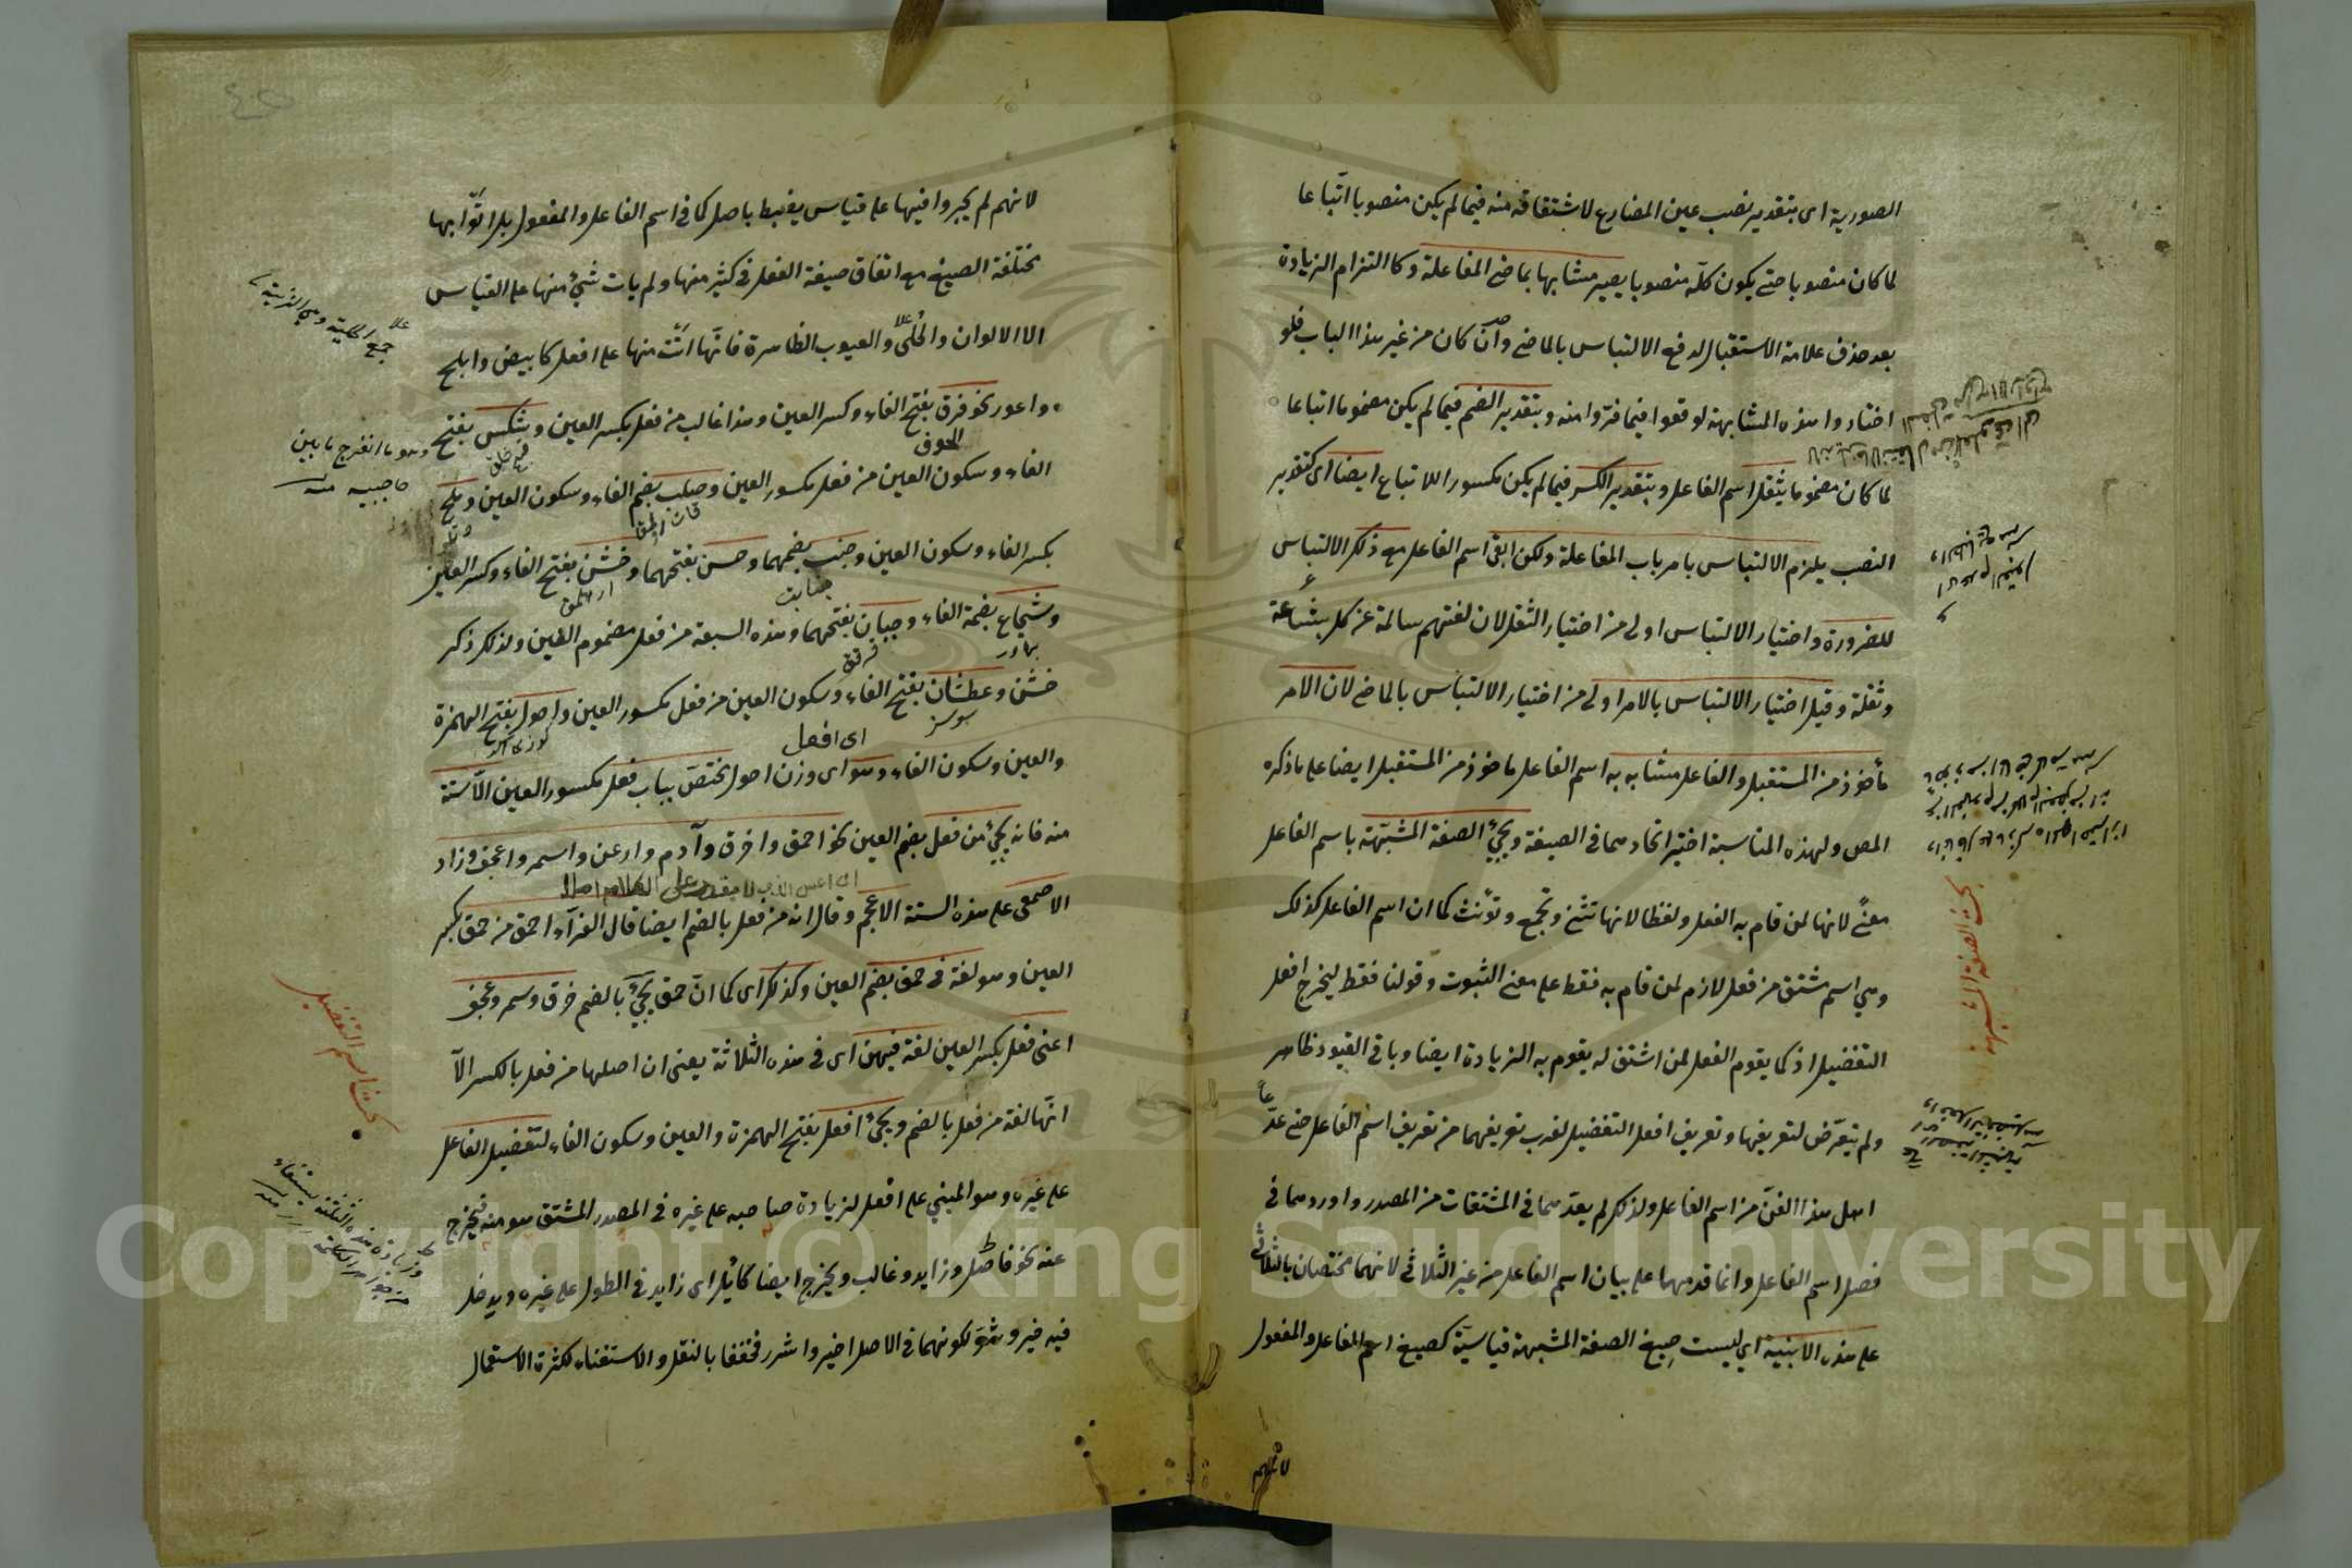 الصورية اى بتقدير نصب عين المضارع لاشتقاقه منه فيما لم يكن منصوبا اتباعا
لما كان منصوبا حتى يكون كله منصوبا يصير مشابها بماضى المفاعلة وكا التزام الزيادة
بعد حذف علامة الاستقبال لدفع الالتباس بالماضى وان كان من غير هذا الباب فلو
اختاروا هذه المشابهة لوقعوا فيما فروا منه وبتقدير الضم فيما لم يكن مضموما اتباعا
لما كان مضموما يثقل اسم الفاعل وبتقدير الكسر فيما لم يكن مكسورا للاتباع ايضا اى كتقدير
النصب يلزم الالتباس بامر باب المفاعلة ولكن ابقى اسم الفاعل مع ذلك الالتباس
للضرورة واختيار الالتباس اولى من اختيار الثقل لان لغتهم سالمة عن كل بشاعة
وثقلة وقيل اختيار الالتباس بالامر اولى من اختيار الالتباس بالماضى لان الامر
مأخوذ من المستقبل والفاعل مشابه به اسم الفاعل ماخوذ من المستقبل ايضا على ما ذكره
المص ولهذه المناسبة اختير اتحادهما فى الصيغة ويجئ الصفة المشبّهة باسم الفاعل
معنًى لانها لمن قام به الفعل ولفظا لانها تثنى وتجمع وتؤنث كما ان اسم الفاعل كذلك
وهى اسم مشتق من فعل لازم لمن قام به فقط على معنى الثبوت وقولنا فقط ليخرج افعل
التفضيل اذ كما يقوم الفعل لمن اشتق له يقوم به الزيادة ايضا وباقى القيود ظاهر
ولم يتعرّض لتعريفها وتعريف افعل التفضيل لقرب تعريفهما من تعريف اسم الفاعل حتى عدّ
اهل هذا الفنّ من اسم الفاعل ولذلك لم يعدّهما فى المشتقات من المصدر واوردهما فى
فصل اسم الفاعل وانما قدمهما على بيان اسم الفاعل من غير الثلاثى لانهما مختصان بالثلاثى
على هذه الابنية اى ليست صيغ الصفة المشبهة قياسيّة كصيغ اسم الفاعل والمفعول
بحث الصفة المشبهة
لانهم
لانهم لم يجروا فيها على قياس يضبط باصل كما فى اسم الفاعل والمفعول بل اتوا بها
مختلفة الصيغ مع اتفاق صيغة الفعل فى كثير منها ولم يات شئ منها على القياس
الا الالوان والحلى والعيوب الظاهرة فانّها اتت منها على افعل كابيض وابلج
واعور نحو فرق بفتح الفاء وكسر العين وهذا غالب من فعل بكسر العين وشكس بفتح
الفاء وسكون العين من فعل مكسور العين وصلب بضم الفاء وسكون العين وملح
بكسر الفاء وسكون العين وجنب بضمهما وحسن بفتحهما وخشن بفتح الفاء وكسر العين
وشجاع بضمة الفاء وجبان بفتحهما وهذه السبعة من فعل مضموم العين ولذلك ذكر
خشن وعطشان بفتح الفاء وسكون العين من فعل مكسور العين واحول بفتح الهمزة
اى افعل
والعين وسكون الفاء وهو اى وزن احول مختصّ بباب فعل مكسور العين الا ستة
منه فانه يجئ من فعل بضم العين نحو احمق واخرق وآدم وارعن واسمر واعجف وزاد
الاصمعى على هذه الستة الاعجم وقال انه من فعل بالضم ايضا قال الفرّاء احمق من حمق بكسر
العين وهو لغة فى حمق بضم العين وكذلك اى كما انّ حمق يجئ بالضم خرق وسمر وعجف
اعنى فعل بكسر العين لغة فيهن اى فى هذه الثلاثة يعنى ان اصلها من فعل بالكسر الا
انّها لغة من فعل بالضم ويجئ افعل بفتح الهمزة والعين وسكون الفاء لتفضيل الفاعل
على غيره وهو المبني على افعل لزيادة صاحبه على غيره فى المصدر المشتق هو منه فيخرج
عنه نحو فاضل وزايد وغالب ويخرج ايضا كاثل اى زايد فى الطول على غيره ويدخل
فيه خير وشرّ لكونهما فى الاصل اخير واشرر فخففا بالنقل والاستغناء لكثرة الاستعمال
وهو ما انفرج ما بين
حاجبيه منه
بحث اسم التفضيل
Copyright © King Saud University